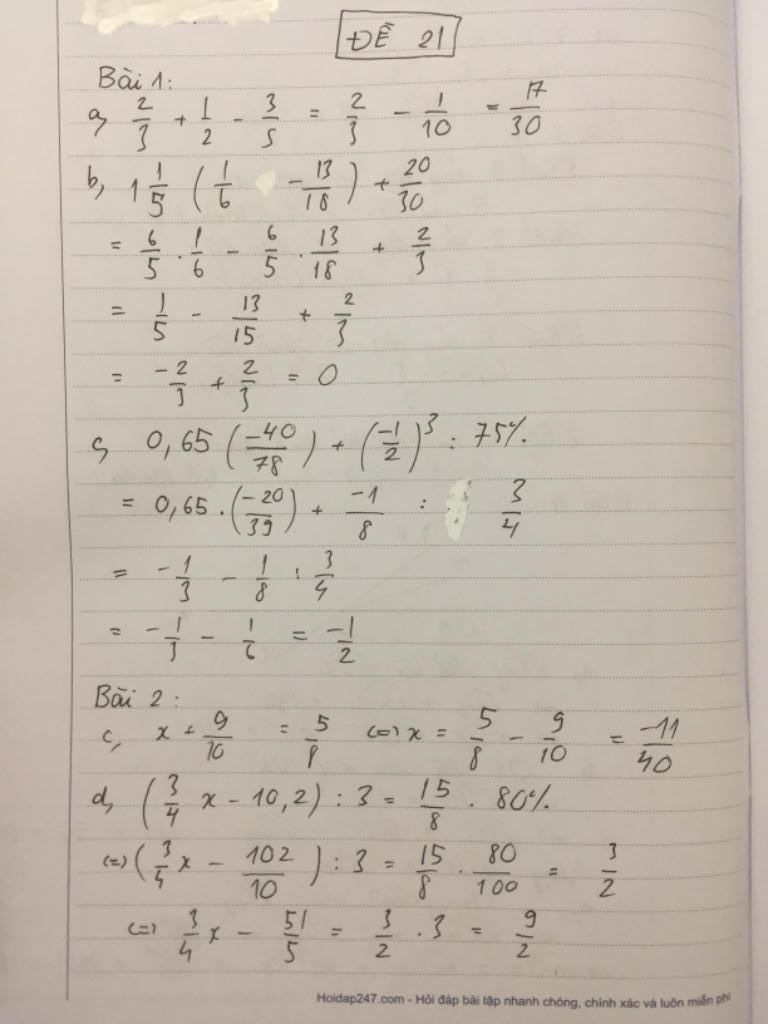 ĐỀ 21
Bài 1:
a, 2/3 + 1/2 - 3/5 = 2/3 - 1/10 = 17/30
b, 1 1/5 (1/6 - 13/18) + 20/30
= 6/5 . 1/6 - 6/5 . 13/18 + 2/3
= 1/5 - 13/15 + 2/3
= -2/3 + 2/3 = 0
c, 0,65 (-40/78) + (-1/2)³ : 75%.
= 0,65 . (-20/39) + -1/8 : 3/4
= -1/3 - 1/8 : 3/4
= -1/3 - 1/6 = -1/2
Bài 2:
c, x + 9/10 = 5/8 <=> x = 5/8 - 9/10 = -11/40
d, (3/4 x - 10,2) : 3 = 15/8 . 80%
(=) (3/4 x - 102/10) : 3 = 15/8 . 80/100 = 3/2
(=) 3/4 x - 51/5 = 3/2 . 3 = 9/2
Hoidap247.com - Hỏi đáp bài tập nhanh chóng, chính xác và luôn miễn phí